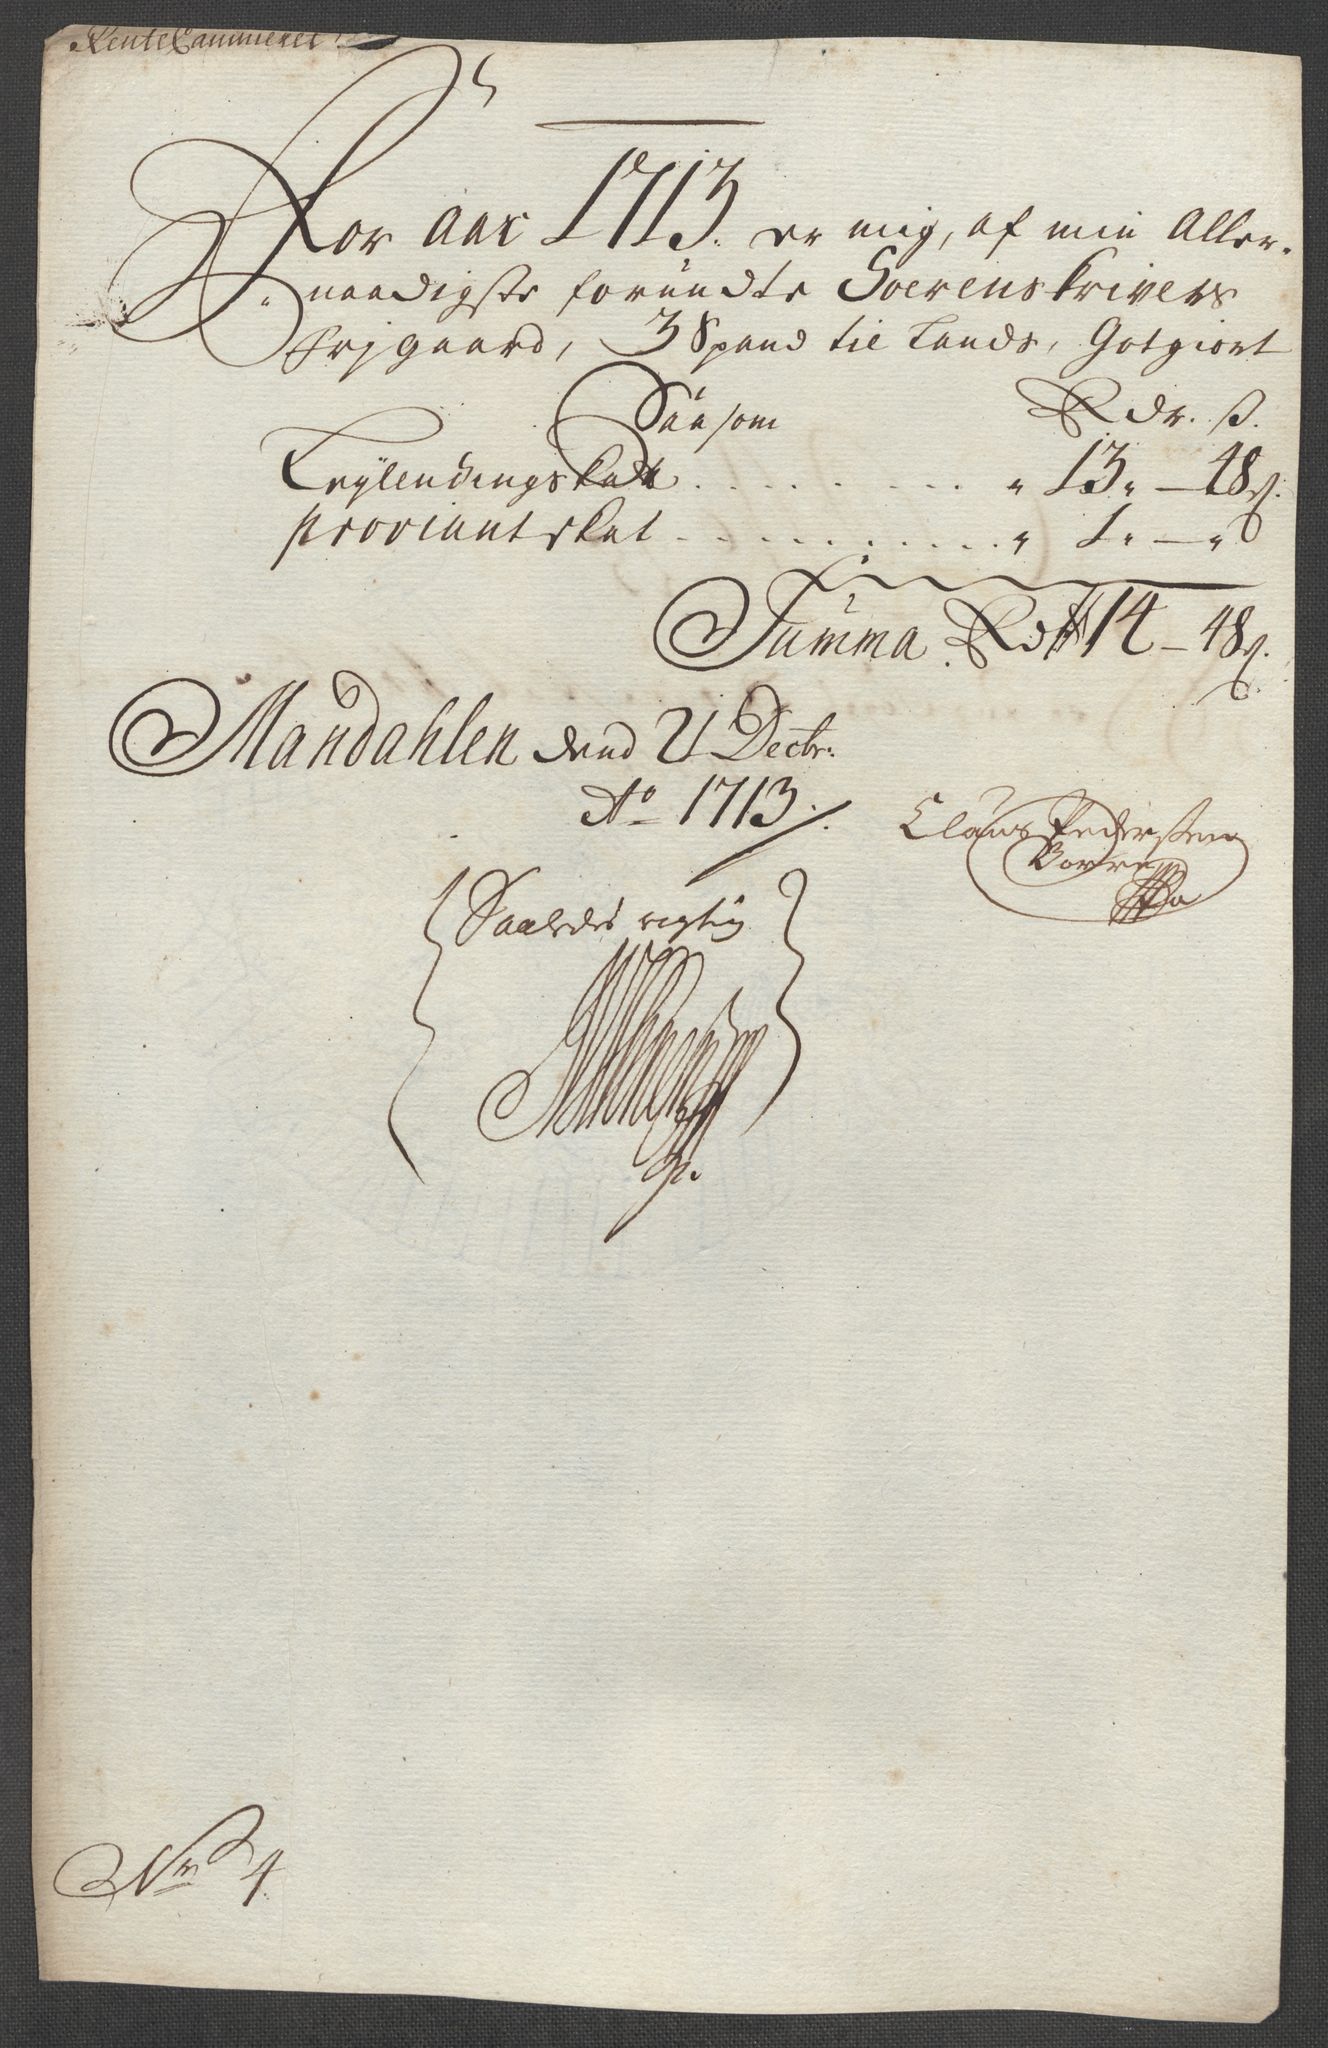 RenteCammeret
For Aar 1713. er mig, af min Aller-
naadigste forundte Soerenskrivers
Frjgaard, 3 Spand til Lands, Gotgiort
Saasom Rdr. ß.
Leylendingskatt . . . . . . . . . " 13 " – 48 ß.
proviantskat . . . . . . . . . . . . " 1 " – "
Summa Rdr 14 – 48 ß.
Mandahlen dend 21 Decbr:
Ao 1713.
Claus Pedersen
Borre
Saaledes rigtig
Nr 4